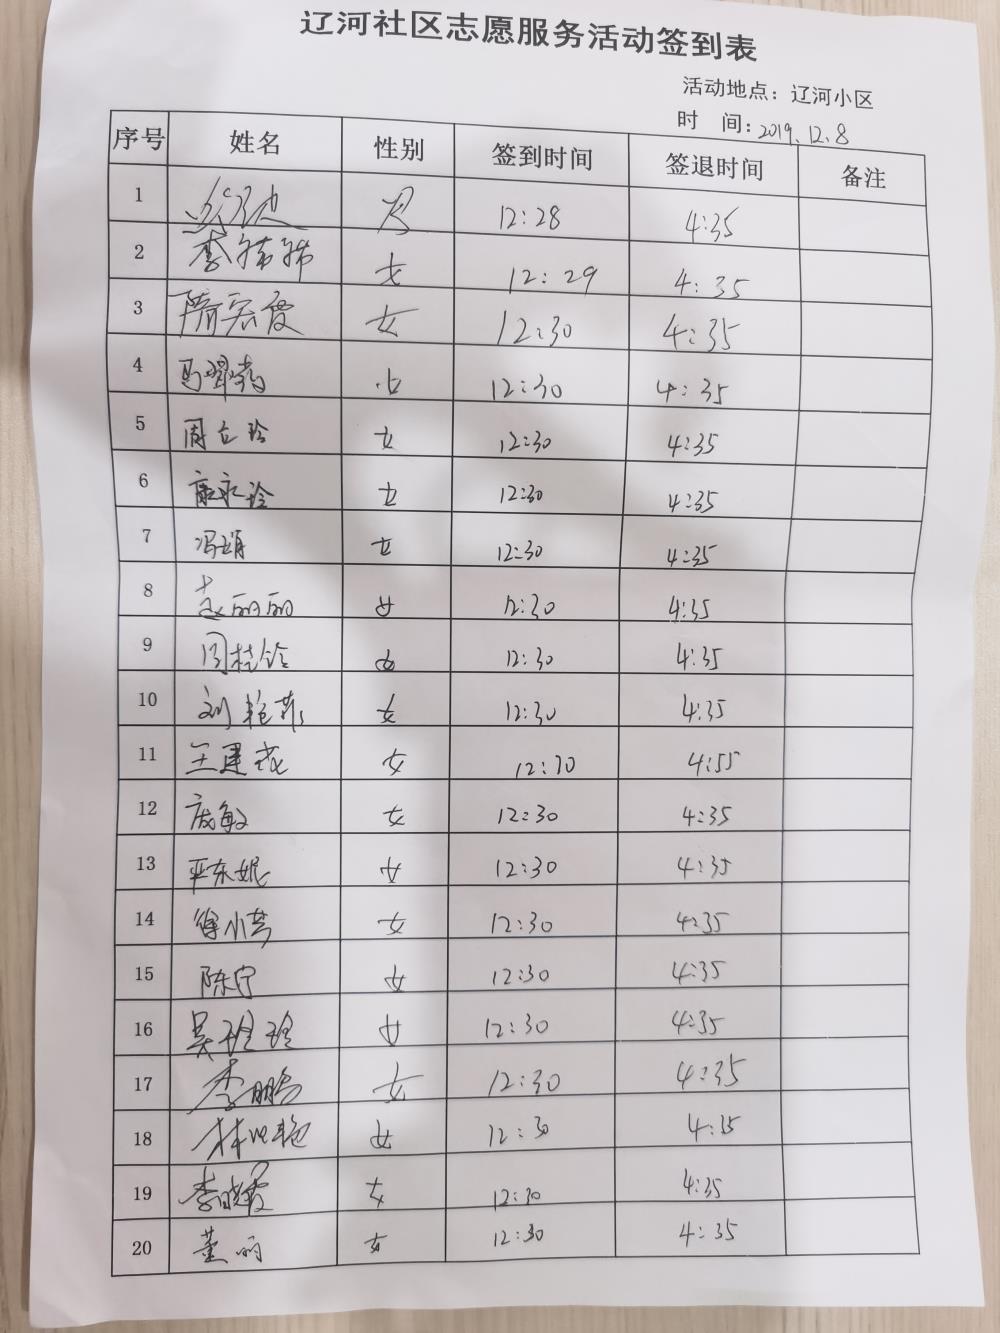 辽河社区志愿服务活动签到表
活动地点：辽河小区
时 间：2019.12.8
序号 姓名 性别 签到时间 签退时间 备注
1 男 12:28 4:35
2 李 女 12:29 4:35
3 隋宏霞 女 12:30 4:35
4 马翠 女 12:30 4:35
5 周立玲 女 12:30 4:35
6 康永玲 女 12:30 4:35
7 冯娟 女 12:30 4:35
8 孟丽丽 女 12:30 4:35
9 周桂铃 女 12:30 4:35
10 刘艳菲 女 12:30 4:35
11 王建 女 12:30 4:55
12 庞敏 女 12:30 4:35
13 平东妮 女 12:30 4:35
14 徐小芳 女 12:30 4:35
15 陈宁 女 12:30 4:35
16 吴玲玲 女 12:30 4:35
17 李鹏 女 12:30 4:35
18 林 艳 女 12:30 4:35
19 李晓霞 女 12:30 4:35
20 董丽 女 12:30 4:35